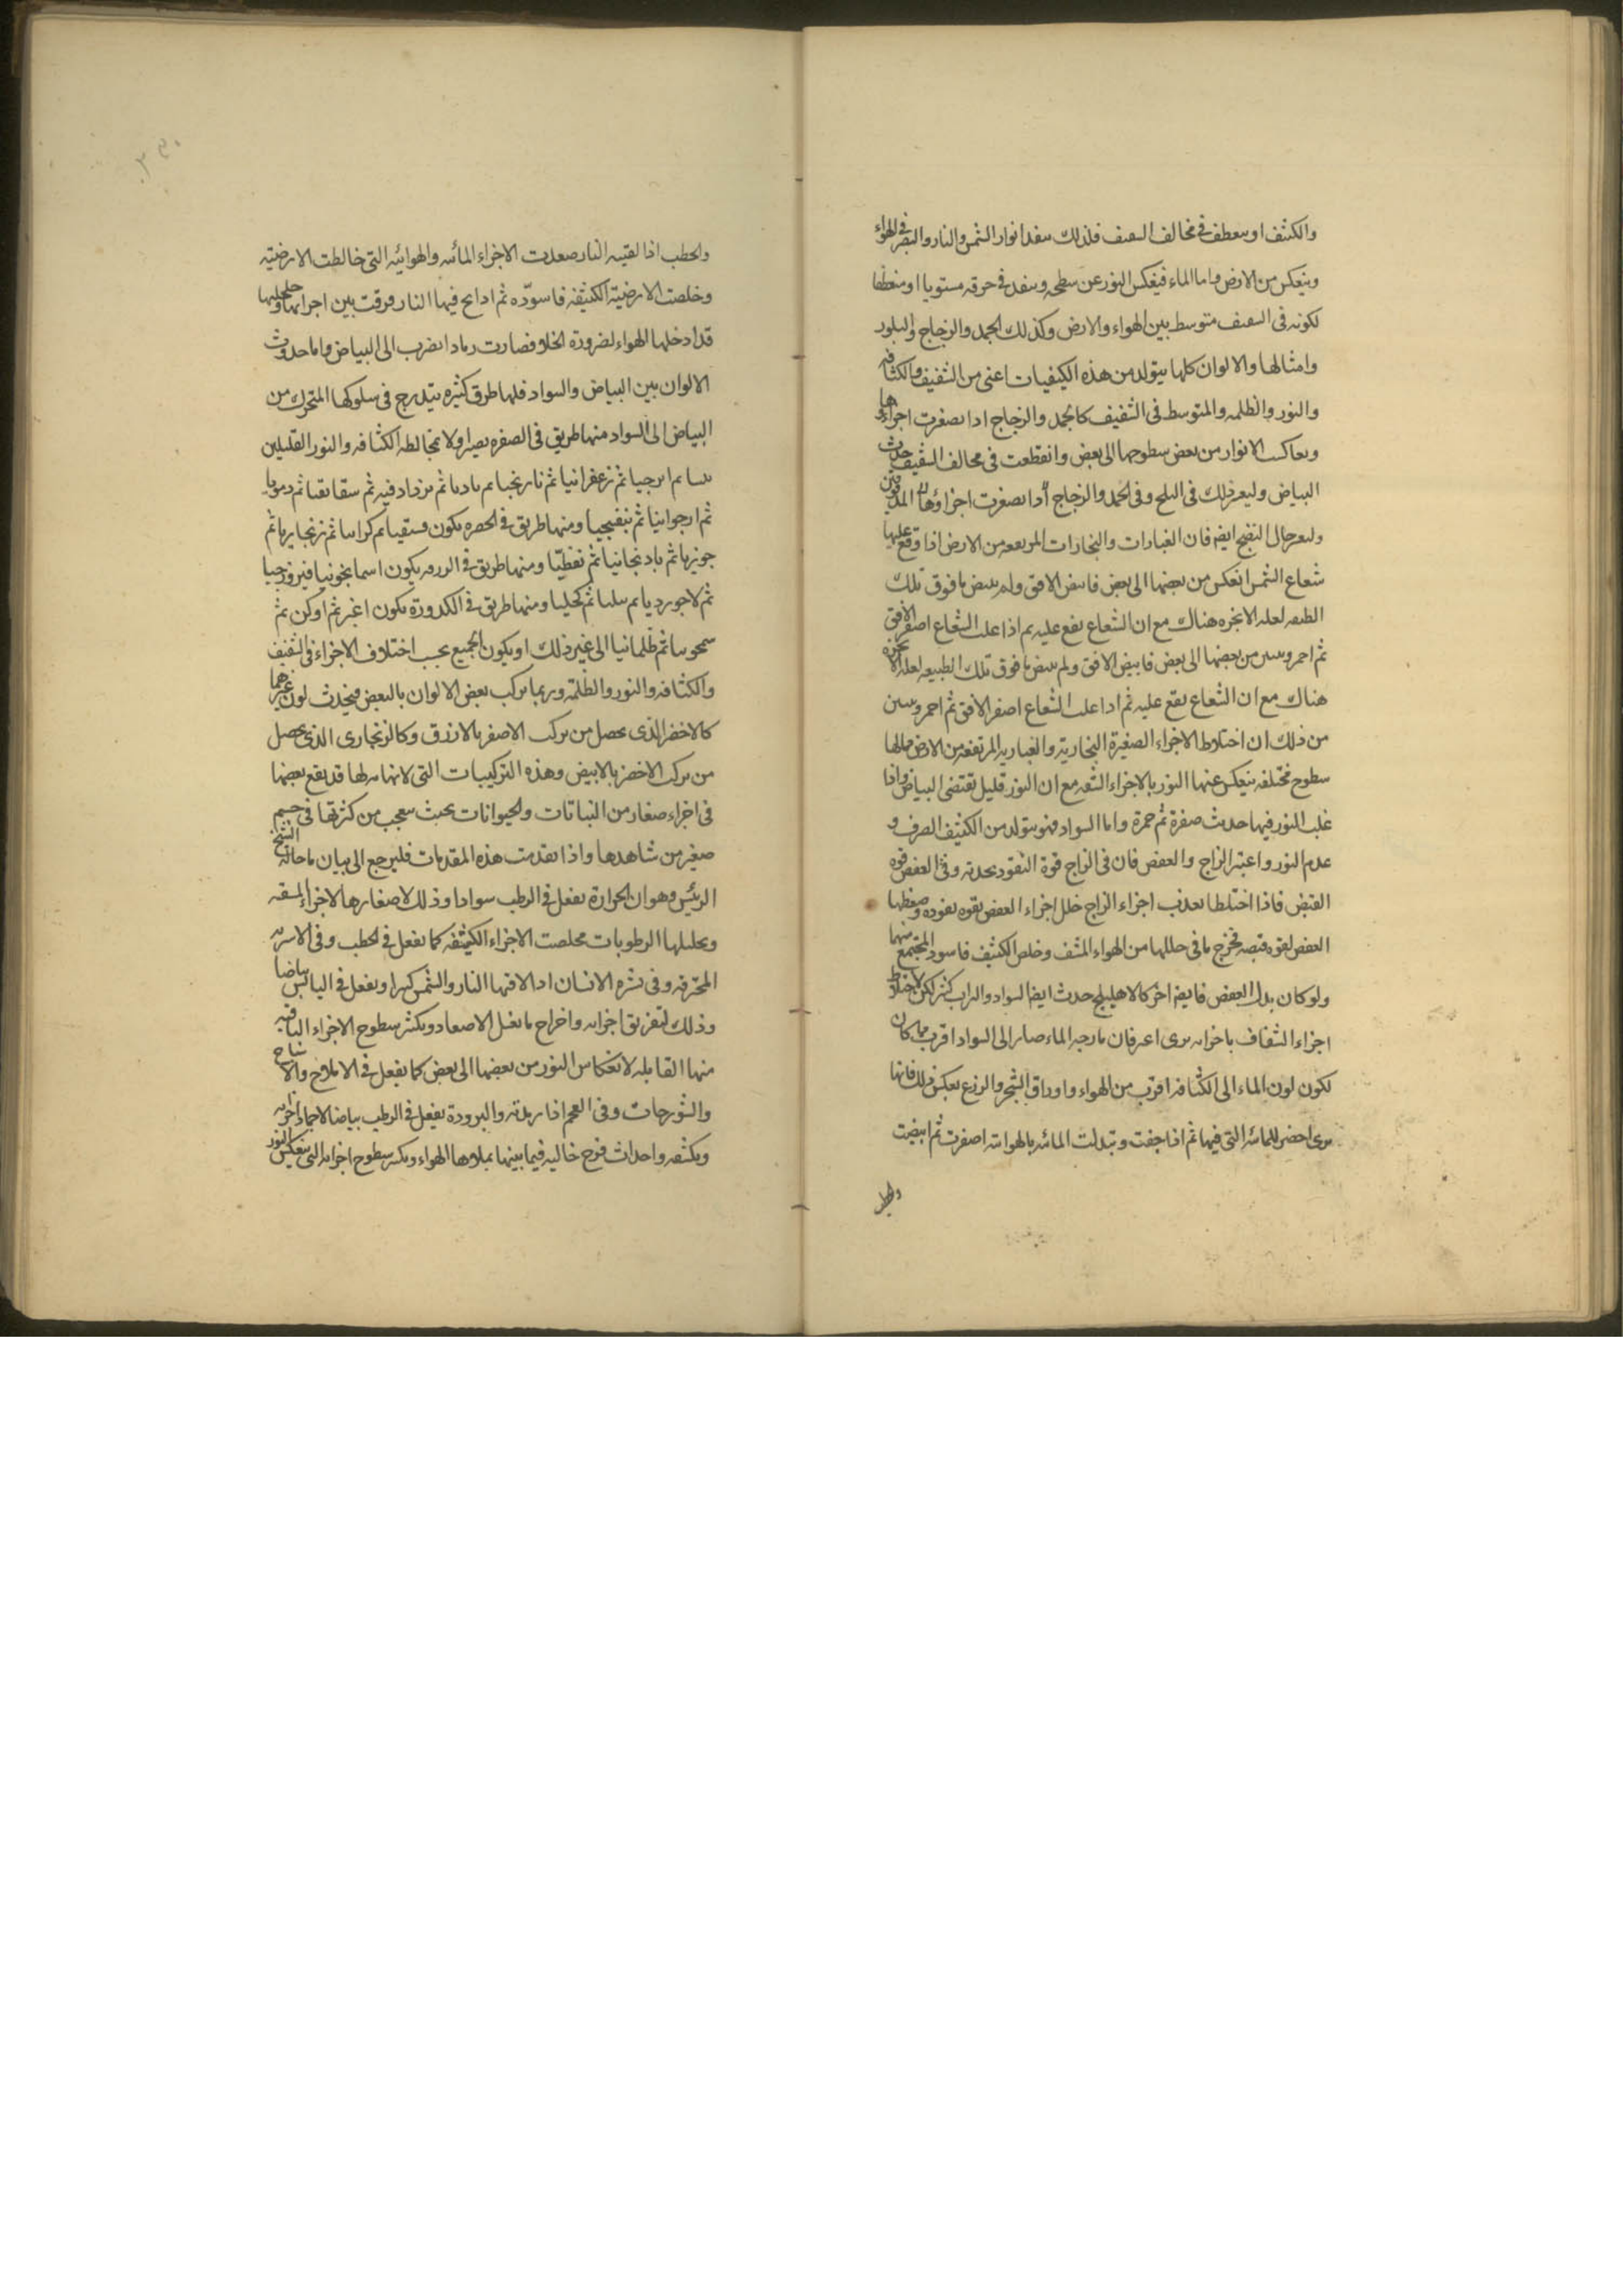 والكثيف او ينعطف في مخالف الشفيف فلذلك ينفذ انوار الشمس والنار والبصر في الهواء
وينعكس من الارض واما الماء فينعكس النور عن سطحه وينفذ في خرقه مستويا او منعطفا
لكونه في الشفيف متوسط بين الهواء والارض وكذلك الجمد والزجاج والبلور
وامثالها والالوان كلها يتولد من هذه الكيفيات اعني من الشفيف والكثافة
والنور والظلمه والمتوسط في الشفيف كالجمد والزجاج اذا تصغرت اجزاؤها
وتعاكست الانوار من بعض سطوحها الى بعض وانقطعت في مخالف الشفيف حدث
البياض وليعتبر ذلك في الثلج وفي الجمد والزجاج اذا تصغرت اجزاؤها المدقوقين
وليعتبر حال الصبح ايضا فان الغبارات والبخارات المرتفعه من الارض اذا وقع عليها
شعاع الشمس انعكس من بعضها الى بعض فابيض الافق ولم يبيض ما فوق تلك
الطبقه لعله الابخره هناك مع ان الشعاع يقع عليه ثم اذا علت الشعاع اصفر الافق
ثم احمر وتبين من بعضها الى بعض فابيض الافق ولم يبيض ما فوق تلك الطبيعه لعله الابخرة
هناك مع ان الشعاع يقع عليه ثم اذا علت الشعاع اصفر الافق ثم احمر وتبين
من ذلك ان اختلاط الاجزاء الصغيرة البخارية والغباريه المرتفعه من الارض مما لها
سطوح مختلفه ينعكس عنها النور بالاجزاء الشفه مع ان النور قليل تقتضي البياض واذا
غلب النور فيها حدث صفرة ثم حمرة واما السواد فهو يتولد من الكثيف الصرف و
عدم النور واعتبر الزاج والعفص فان في الزاج قوة النفوذ بحدته وفي العفص قوه
القبض فاذا اختلطا نفذت اجزاء الزاج خلل اجزاء العفص بقوه نفوذه وضغطها
العفص لقوه قبضه فخرج ما في خللها من الهواء المشف وخلص الكثيف فاسود المجتمع منهما
ولو كان بدل العفص قابض اخر كالاهليلج حدث ايضا السواد والتراب كثر لكن لاختلاط
اجزاء الشفاف باجزائه يرى اغبر فان مازجه الماء صار الى السواد اقرب مما كان
لكون لون الماء الى الكثافه اقرب من الهواء واوراق الشجر والزرع بعكس ذلك فانها
يرى اخضر للمائيه التي فيها ثم اذا جفت وتبدلت المائيه بالهوائيه اصفرت ثم ابيضت
والحطب
والحطب اذا لقيته النار صعدت الاجزاء المائيه والهوائيه التي خالطت الارضيه
وخلصت الارضية الكثيفة فاسوده ثم اذا لج فيها النار فرقت بين اجزائها وخللها
قد ادخلها الهواء لضرورة الخلا فصارت رمادا يضرب الى البياض واما حدوث
الالوان بين البياض والسواد فلها طرق كثيره يتدرج في سلوكها المتحرك من
البياض الى السواد منها طريق في الصفره يصير اولا بمخالطه الكثافه والنور القليلين
تبنيا ثم اترجيا ثم زعفرانيا ثم نارنجيا ثم ناريا ثم يزداد فيه ثم شقائقيا ثم دمويا
ثم ارجوانيا ثم بنفسجيا ومنها طريق في الخضره يكون فستقيا ثم كراثيا ثم زنجاريا ثم
جوزيا ثم باذنجانيا ثم نفطيا ومنها طريق في الزرقه يكون اسمانجونيا فيروزجيا
ثم لاجورديا ثم نيليا ثم كحليا ومنها طريق في الكدورة يكون اغبر ثم ادكن ثم
ثم ظلمانيا الى غير ذلك او يكون الجميع بحسب اختلاف الاجزاء في الشفيف
والكثافه والنور والظلمة وربما تركب بعض الالوان بالبعض فيحدث لون غيرهما
كالاخضر الذي يحصل من تركب الاصفر بالازرق وكالزنجاري الذي يحصل
من تركب الاخضر بالابيض وهذه التركيبات التي لا نهايه لها قد يقع بعضها
في اجزاء صغار من النباتات والحيوانات بحيث يتعجب من كثرتها في جسم
صغير من شاهدها واذا تقدمت هذه المقدمات فليرجع الى بيان ما قاله الشيخ
الرئيس وهو ان الحرارة تفعل في الرطب سوادا وذلك لاصعادها الاجزاء المشفه
وتحليلها الرطوبات فخلصت الاجزاء الكثيفه كما تفعل في الحطب وفي
المحترقه وفي بشره الانسان اذا لاقتها النار والشمس كثيرا وتفعل في اليابس بياضا
وذلك لتفريق اجزائه واخراج ما يقبل الاصعاد وتكثر سطوح الاجزاء الباقيه
منها القابله لانعكاس النور من بعضها الى بعض كما يفعل في الاملاح
والنورجات وفي الفحم اذا رمدته والبرودة تفعل في الرطب بياضا لاجماد اجزائه
وتكثفه واحداث فرج خاليه فيما بينها يملاها الهواء وتكثر سطوح اجزائه التي ينعكس النور